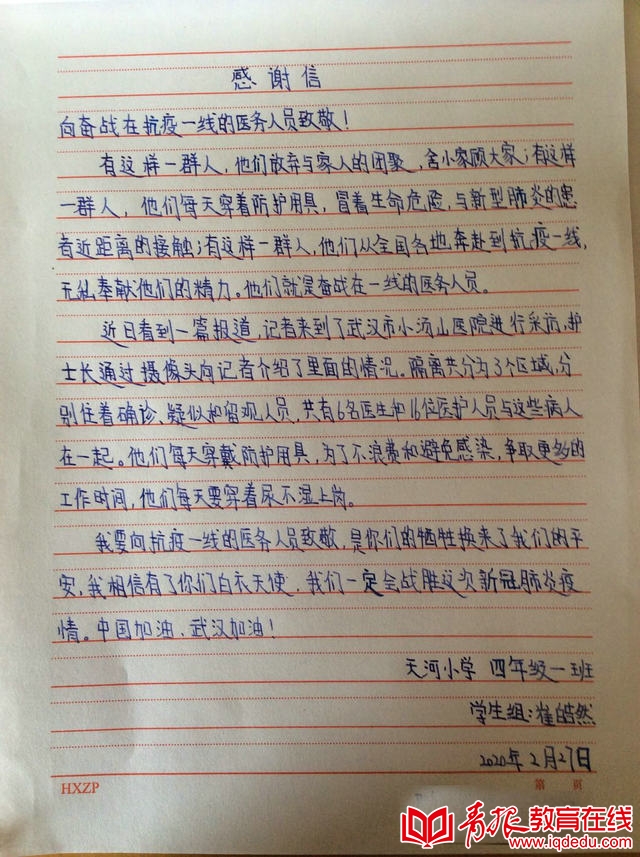 感谢信
向奋战在抗疫一线的医务人员致敬！
有这样一群人，他们放弃与家人的团聚，舍小家顾大家；有这样
一群人，他们每天穿着防护用具，冒着生命危险，与新型肺炎的患
者近距离的接触；有这样一群人，他们从全国各地奔赴到抗疫一线，
无私奉献他们的精力。他们就是奋战在一线的医务人员。
近日看到一篇报道，记者来到了武汉市小汤山医院进行采访，护
士长通过摄像头向记者介绍了里面的情况。隔离共分为3个区域，分
别住着确诊、疑似和留观人员，共有6名医生和16位医护人员与这些病人
在一起。他们每天穿戴防护用具，为了不浪费和避免感染，争取更多的
工作时间，他们每天要穿着尿不湿上岗。
我要向抗疫一线的医务人员致敬，是你们的牺牲换来了我们的平
安，我相信有了你们白衣天使，我们一定会战胜这次新冠肺炎疫
情。中国加油，武汉加油！
天河小学 四年级一班
学生组：崔皓然
2020年2月27日
HXZP 第 页
青报教育在线
www.iqdedu.com